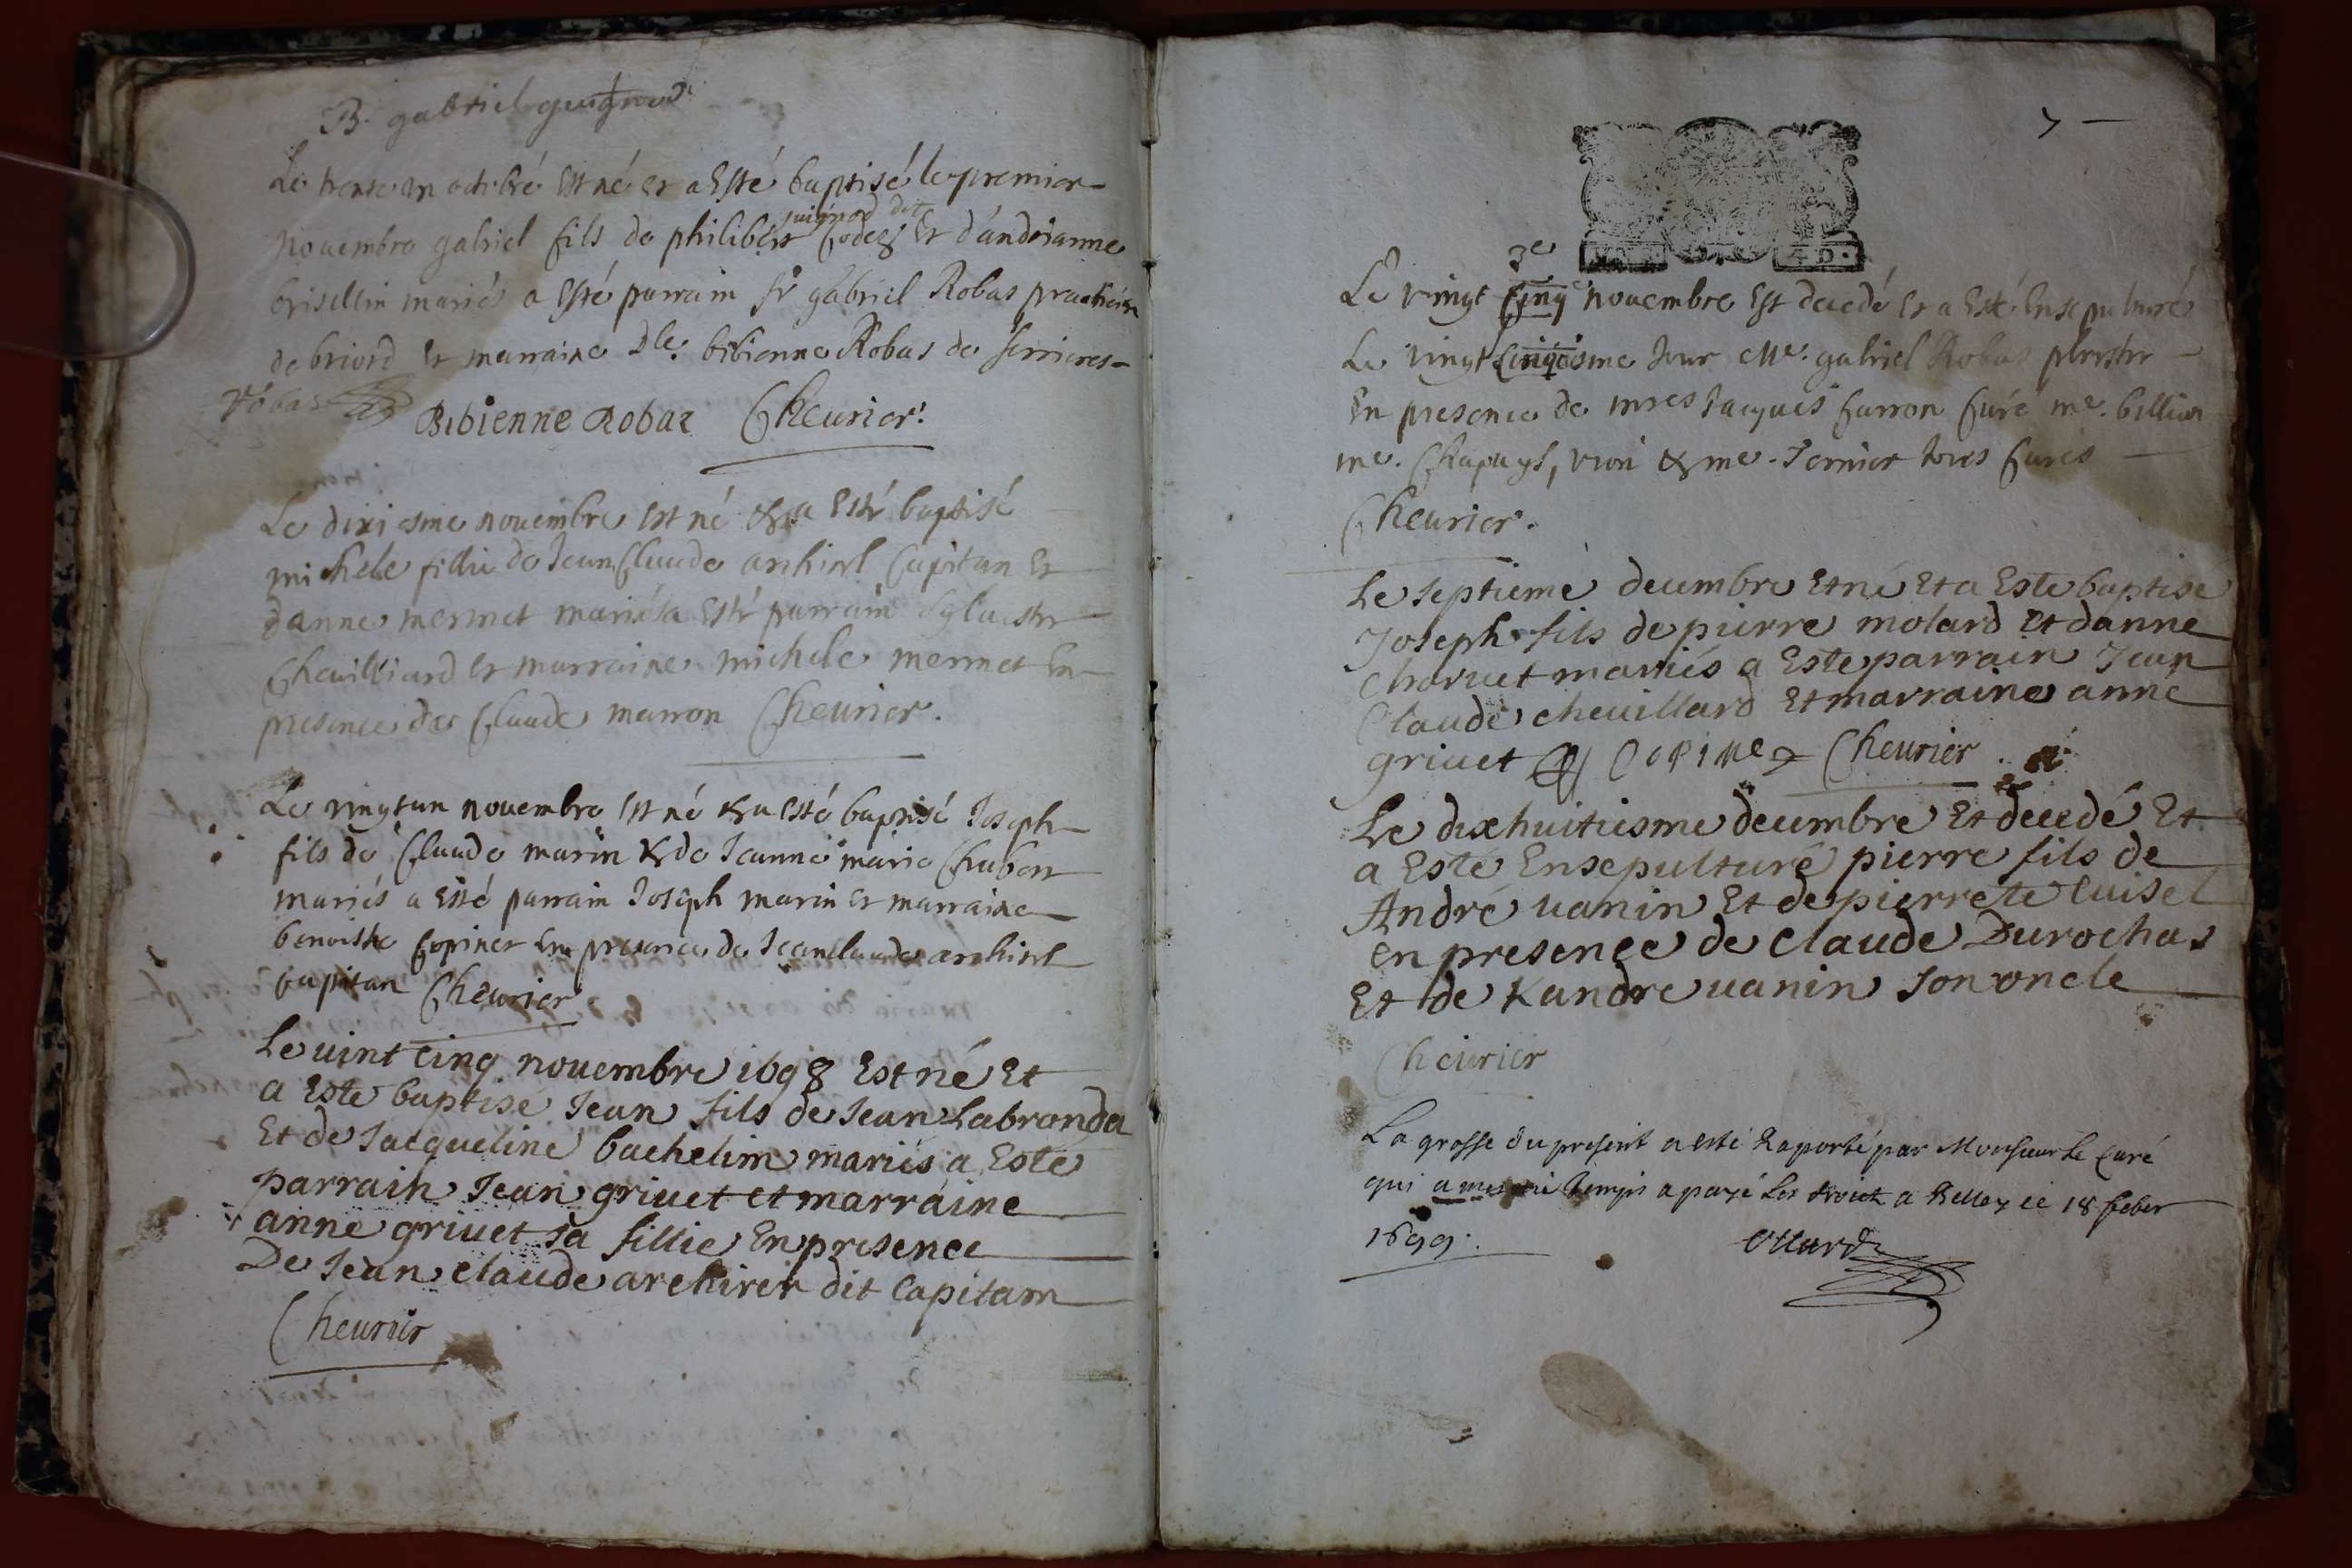 B. gabriel guignod
Le trente un octobre est né et a Esté baptisé le premier
novembre gabriel fils de philibert guignod dit Codex Et d'andrianne
brisellin mariés a Esté parrain Sr gabriel Robas practicien
de briord Et marraine Dle. bibienne Robas de serrieres
Robas Bibienne Robaz Cheurier.
Le dixiesme nouembre est né & a Esté baptisé
michele fillie de Jean Claude archirel Capitan Et
danne mermet mariés a Esté parrain Syluestre
Cheuilliard Et marraine michele mermet En
presence de Claude marron Cheurier.
Le vingt un nouembre Est né & a Esté baptisé Joseph
fils de Claude marin & de Jeanne marie Chubert
mariés a Esté parrain Joseph marin Et marraine
benoiste Copiner En presence de Jean Claude archirel
Capitan Cheurier
Le uint cinq nouembre 1698 Est né Et
a Este baptisé Jean fils de Jean Labronda
Et de Jacqueline bachelin mariés a Este
parrain Jean griuet et marraine
anne griuet sa fillie En presence
De Jean claude archirer dit Capitam
Cheurier
7
Le vingt cinq 3e nouembre Est decedé Et a Esté Ensepulturé
Le vingt cinqiesme Jour Me. gabriel Robas prestre
En presence de mres Jacques Carron Curé me. billion
me. Chapuys, & me. Jernier tous Curés
Cheurier.
Le septieme decembre Et né Et a Este baptisé
Joseph fils de pierre molard Et danne
Charuet mariés a Este parrain Jean
Claude cheuillard Et marraine anne
griuet Copine Cheurier
Le dixhuitiesme decembre Et decedé Et
a Esté Ensepulturé pierre fils de
André uanin Et de pierrete luisel
en presence de Claude Durochas
Et de Kandre uanin son oncle
Cheurier
La grosse du present a esté Raporté par Monsieur Le Curé
qui a mesme temps a payé Les droict a Belley ce 18 feber
1699.